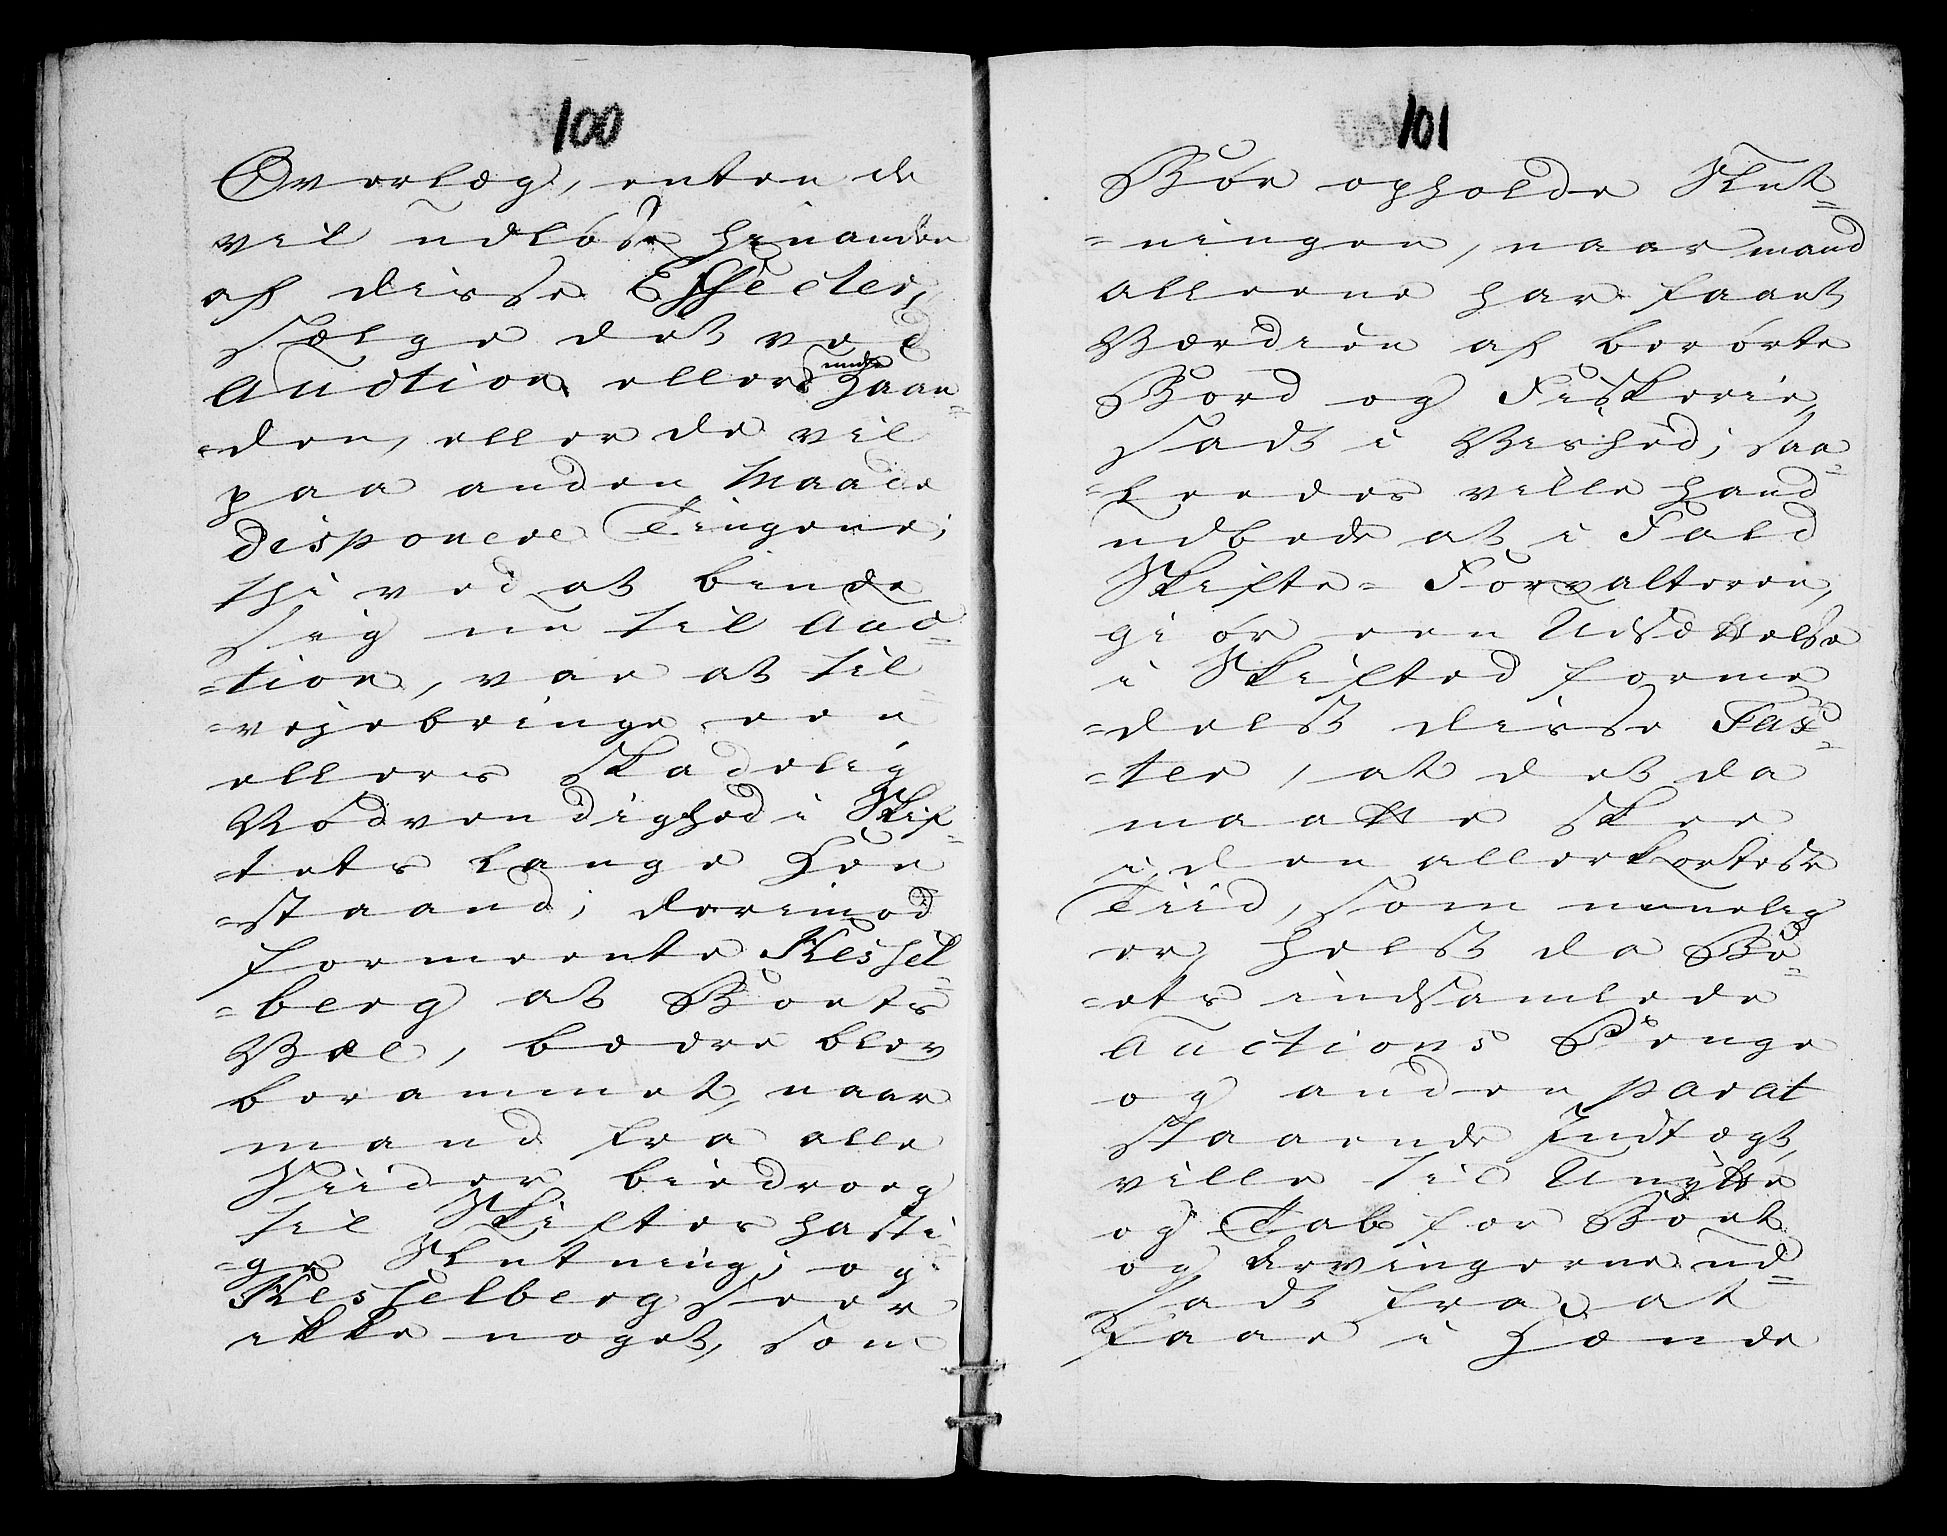 100
Overlæg, enten de
vil udløse hinanden
af disse Effecter,
sælge det ved
Auction ellers under Haan
=den, eller de vil
paa anden Maade
disponere Tingene;
thi ved at binde
sig nu til Auc=
=tion, var at til
=vejebringe een
ellers skadelig
Nødvendighed i Skif=
=tets lange Hen
=staand; derimod
formeente Kessel=
=berg at Boets
Væl, bedre blev
berammet, naar
mand fra alle
Siider biedroeg
til Skiftes hasti=
=ge Slutning; og
Kesselberg seer
ikke noget, som
101
Bør opholde Slut=
=ningen, naar mand
alleene har faaet
Værdien af berørte
Bord og Fiskerie,
sadt i Vished; saa=
=leedes ville hand
udbede at i Fald
Skifte=Forvalteren,
giør een Udsættelse
i Skifted forme
=delst disse Fax=
=ter, at det da
maatte skee
i den allerkorteste
Tiid, som muuelig
er, helst da Bo=
=ets indsamlede
Auctions Penge
og anden parat
staaende Indtægt,
ville til Unytte
og Tab for Boet
og Arvingerne ud=
sadt fra, at
faae i Hænde